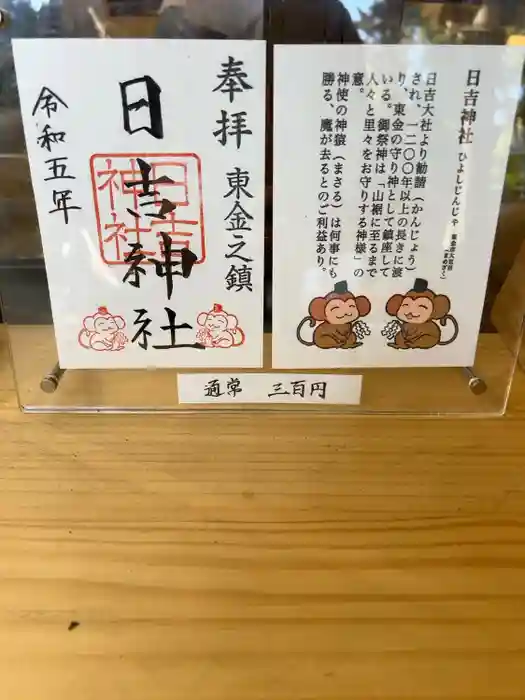 奉拝
東金之鎮
日吉神社
日吉
神社
令和五年
日吉神社 ひよしじんじゃ
日吉大社より勧請（かんじょう）
され、一二〇〇年以上の長きに渡
り、東金の守り神として鎮座して
いる。御祭神は「山裾に至るまで
人々と里々をお守りする神様」の
意。
神使の神猿（まさる）は何事にも
勝る、魔が去るとのご利益あり。
通常 三百円